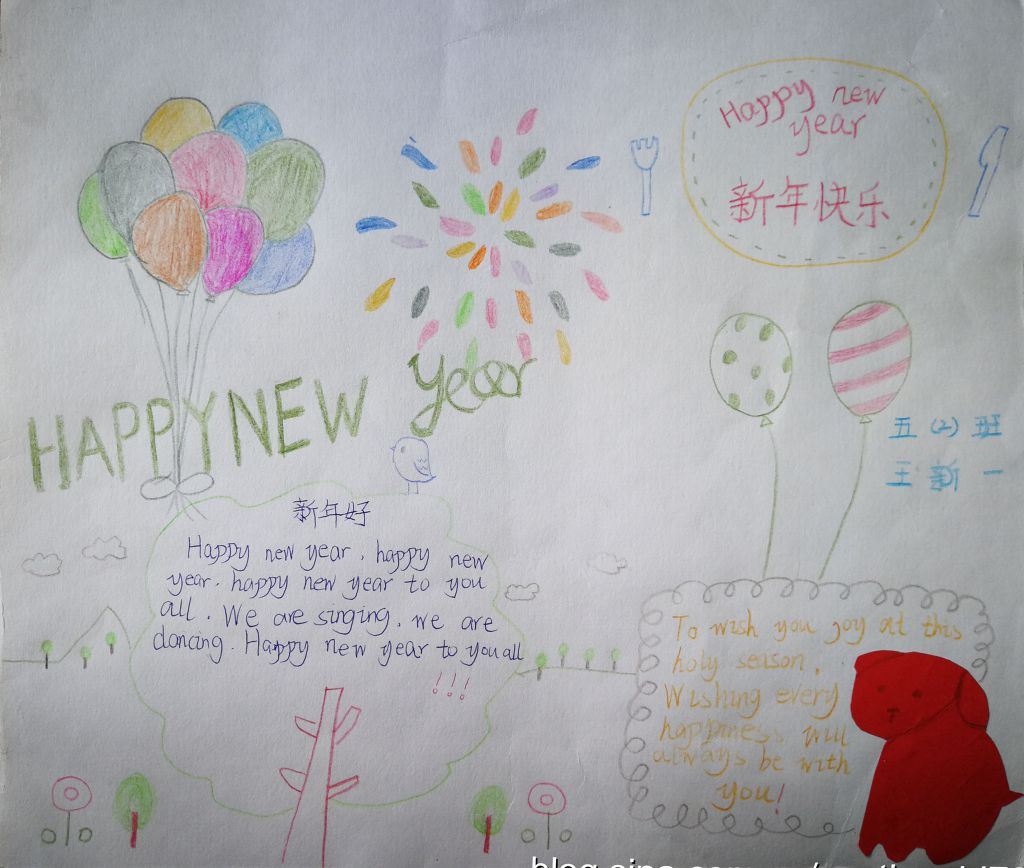 Happy new
year
新年快乐
HAPPY NEW Year
五(2)班
王新一
新年好
Happy new year. happy new
year. happy new year to you
all. We are singing. we are
dancing. Happy new year to you all
!!!
To wish you joy at this
holy season.
Wishing every
happiness will
always be with
you!